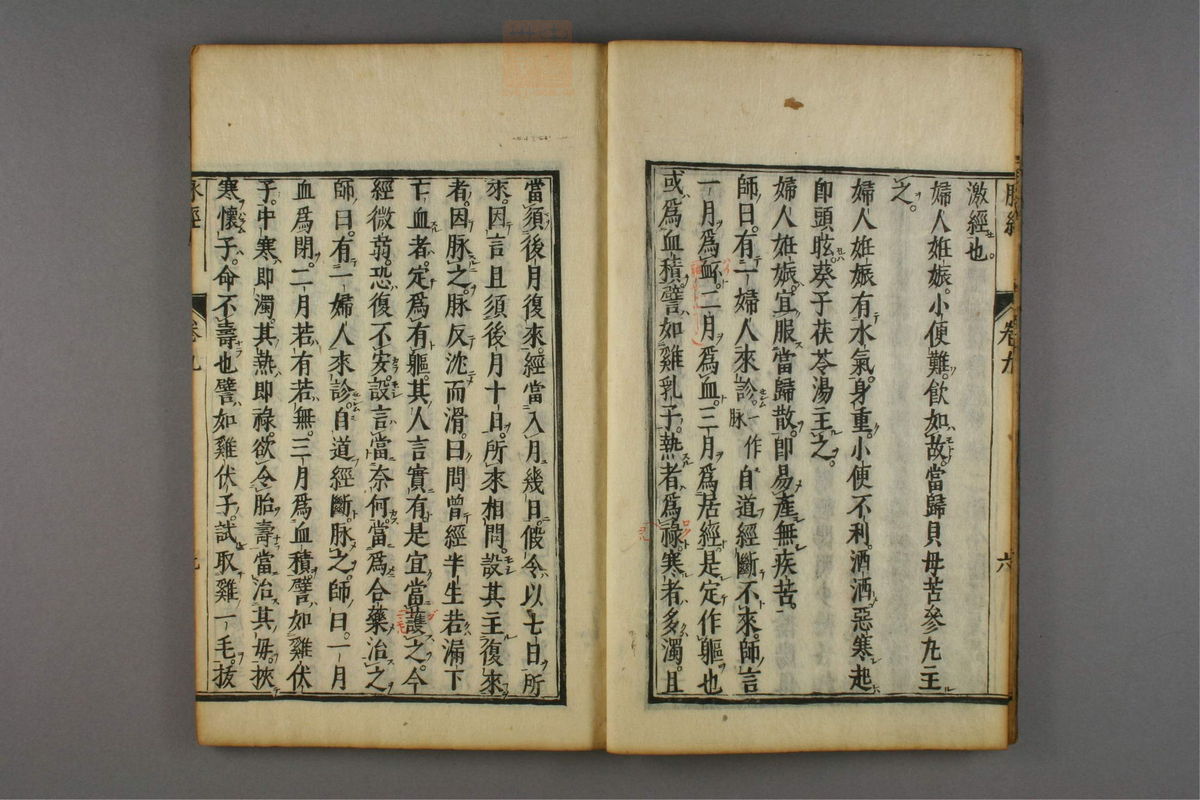 脉經
卷九
六
激經也。
婦人妊娠。小便難。飲如故。當歸貝母苦參丸主
之。
婦人妊娠有水氣。身重。小便不利。洒洒惡寒。起
即頭眩。葵子茯苓湯主之。
婦人妊娠。宜服當歸散。即易產無疾苦。
師曰。有一婦人來診。一作脉自道經斷不來。師言
一月爲衃。二月爲血。三月爲居經。是定作軀也
或爲血積。譬如雞乳子。熱者爲祿。寒者多濁。且
當須後月復來。經當入月幾日。假令以七日所
來。因言且須後月十日。所來相問。設其主復來
者。因脉之。脉反沈而滑。曰問曾經半生若漏下
亡血者。定爲有軀。其人言實有。是宜當護之。今
經微弱。恐復不安。設言當奈何。當爲合藥治之
師曰。有一婦人來診。自道經斷。脉之。師曰。一月
血爲閉。二月若有若無。三月爲血積。譬如雞伏
子。中寒即濁。其熱即祿。欲令胎壽。當治其母。挾
寒懷子。命不壽也。譬如雞伏子。試取雞一毛。拔
脉經
卷九